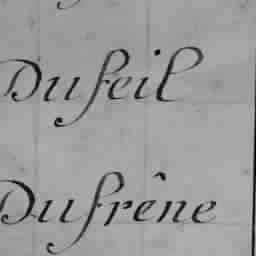 Dufeil
Dufrêne